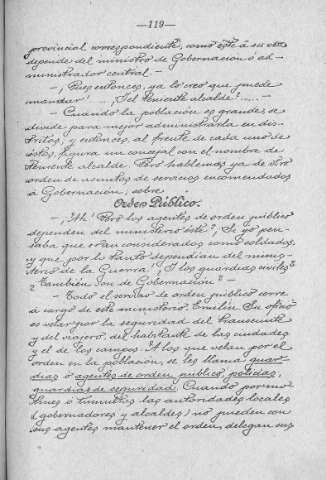 —119—
provincial correspondiente, como éste á su vez
depende del ministro de Gobernación ó ad-
ministrador central —
—¡Pues entonces, ya lo creo que puede
mandar! —¿Y el teniente alcalde?.....—
—Cuando la población es grande, se
divide para mejor administrarla en dis-
tritos, y entonces, al frente de cada uno de
éstos, figura un concejal con el nombre de
teniente alcalde. Pero hablemos ya de otro
orden de asuntos ó servicios encomendados
á Gobernación, sobre
Orden Público.
—¡Ah! ¿Pero los agentes de orden público
dependen del ministerio éste? ¡Si yo pen-
saba que eran considerados como soldados,
y que por lo tanto dependían del minis-
terio de la Guerra! ¿Y los guardias civiles?
¿También son de Gobernación? —
—Todo el servicio de orden público corre
á cargo de este ministerio, Emilín. Su oficio
es velar por la seguridad del transeunte
y del viajero, del habitante de las ciudades
y el de los campos. A los que velan por el
orden en la población, se les llama guar-
dias ó agentes de orden público, policías,
guardias de seguridad. Cuando por mo-
tines ó tumultos las autoridades locales
(gobernadores y alcaldes) no pueden con
sus agentes mantener el orden, delegan sus